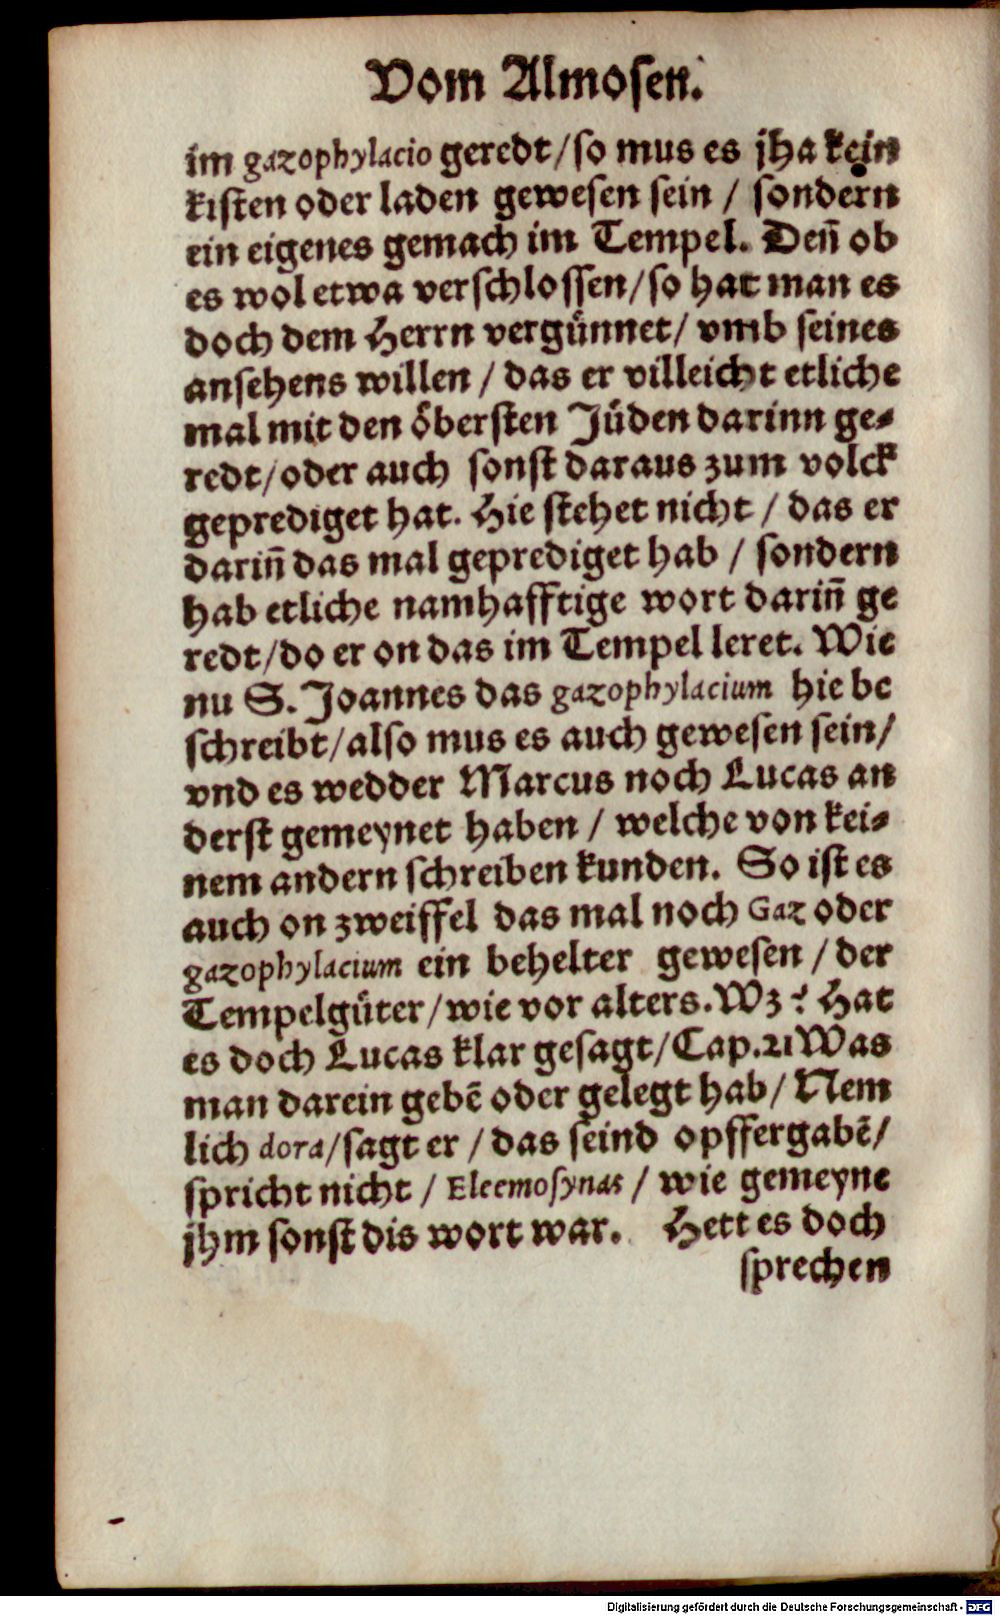 Vom Almosen.
im gazophylacio geredt/so mus es jha kein
kisten oder laden gewesen sein / sondern
ein eigenes gemach im Tempel. Deñ ob
es wol etwa verschlossen/so hat man es
doch dem Herrn vergünnet/ vmb seines
ansehens willen / das er villeicht etliche
mal mit den öbersten Jüden darinn ge-
redt/oder auch sonst daraus zum volck
geprediget hat. Hie stehet nicht / das er
dariñ das mal geprediget hab / sondern
hab etliche namhafftige wort dariñ ge
redt/do er on das im Tempel leret. Wie
nu S. Joannes das gazophylacium hie be
schreibt/also mus es auch gewesen sein/
vnd es wedder Marcus noch Lucas an
derst gemeynet haben / welche von kei-
nem andern schreiben kunden. So ist es
auch on zweiffel das mal noch Gaz oder
gazophylacium ein behelter gewesen / der
Tempelgüter/wie vor alters. Wz? Hat
es doch Lucas klar gesagt/Cap.21 Was
man darein gebē oder gelegt hab/ Nem
lich dora/sagt er / das seind opffergabē/
spricht nicht / Eleemosynas / wie gemeyne
jhm sonst dis wort war. Hett es doch
sprechen
Digitalisierung gefördert durch die Deutsche Forschungsgemeinschaft - DFG